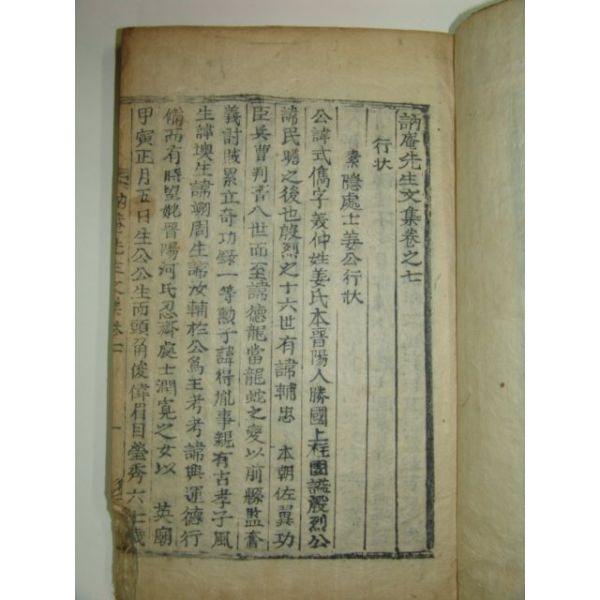 訥庵先生文集卷之七
行狀
素隱處士姜公行狀
公諱式儁字羲仲姓姜氏本晉陽人勝國上柱國諡殷烈公
諱民瞻之後也殷烈之十六世有諱輔忠 本朝佐翼功
臣兵曹判書八世而至諱德龍當龍蛇之變以前縣監奮
義討賊累立奇功錄一等勳子諱得胤事親有古孝子風
生諱堧生諱翊周生諱汝輔於公爲王考考諱興運德行
備而有時望妣晉陽河氏忍齋處士潤寬之女以 英廟
甲寅正月五日生公公生而頭角俊偉眉目瑩秀六七歲
訥庵先生文集卷七 一